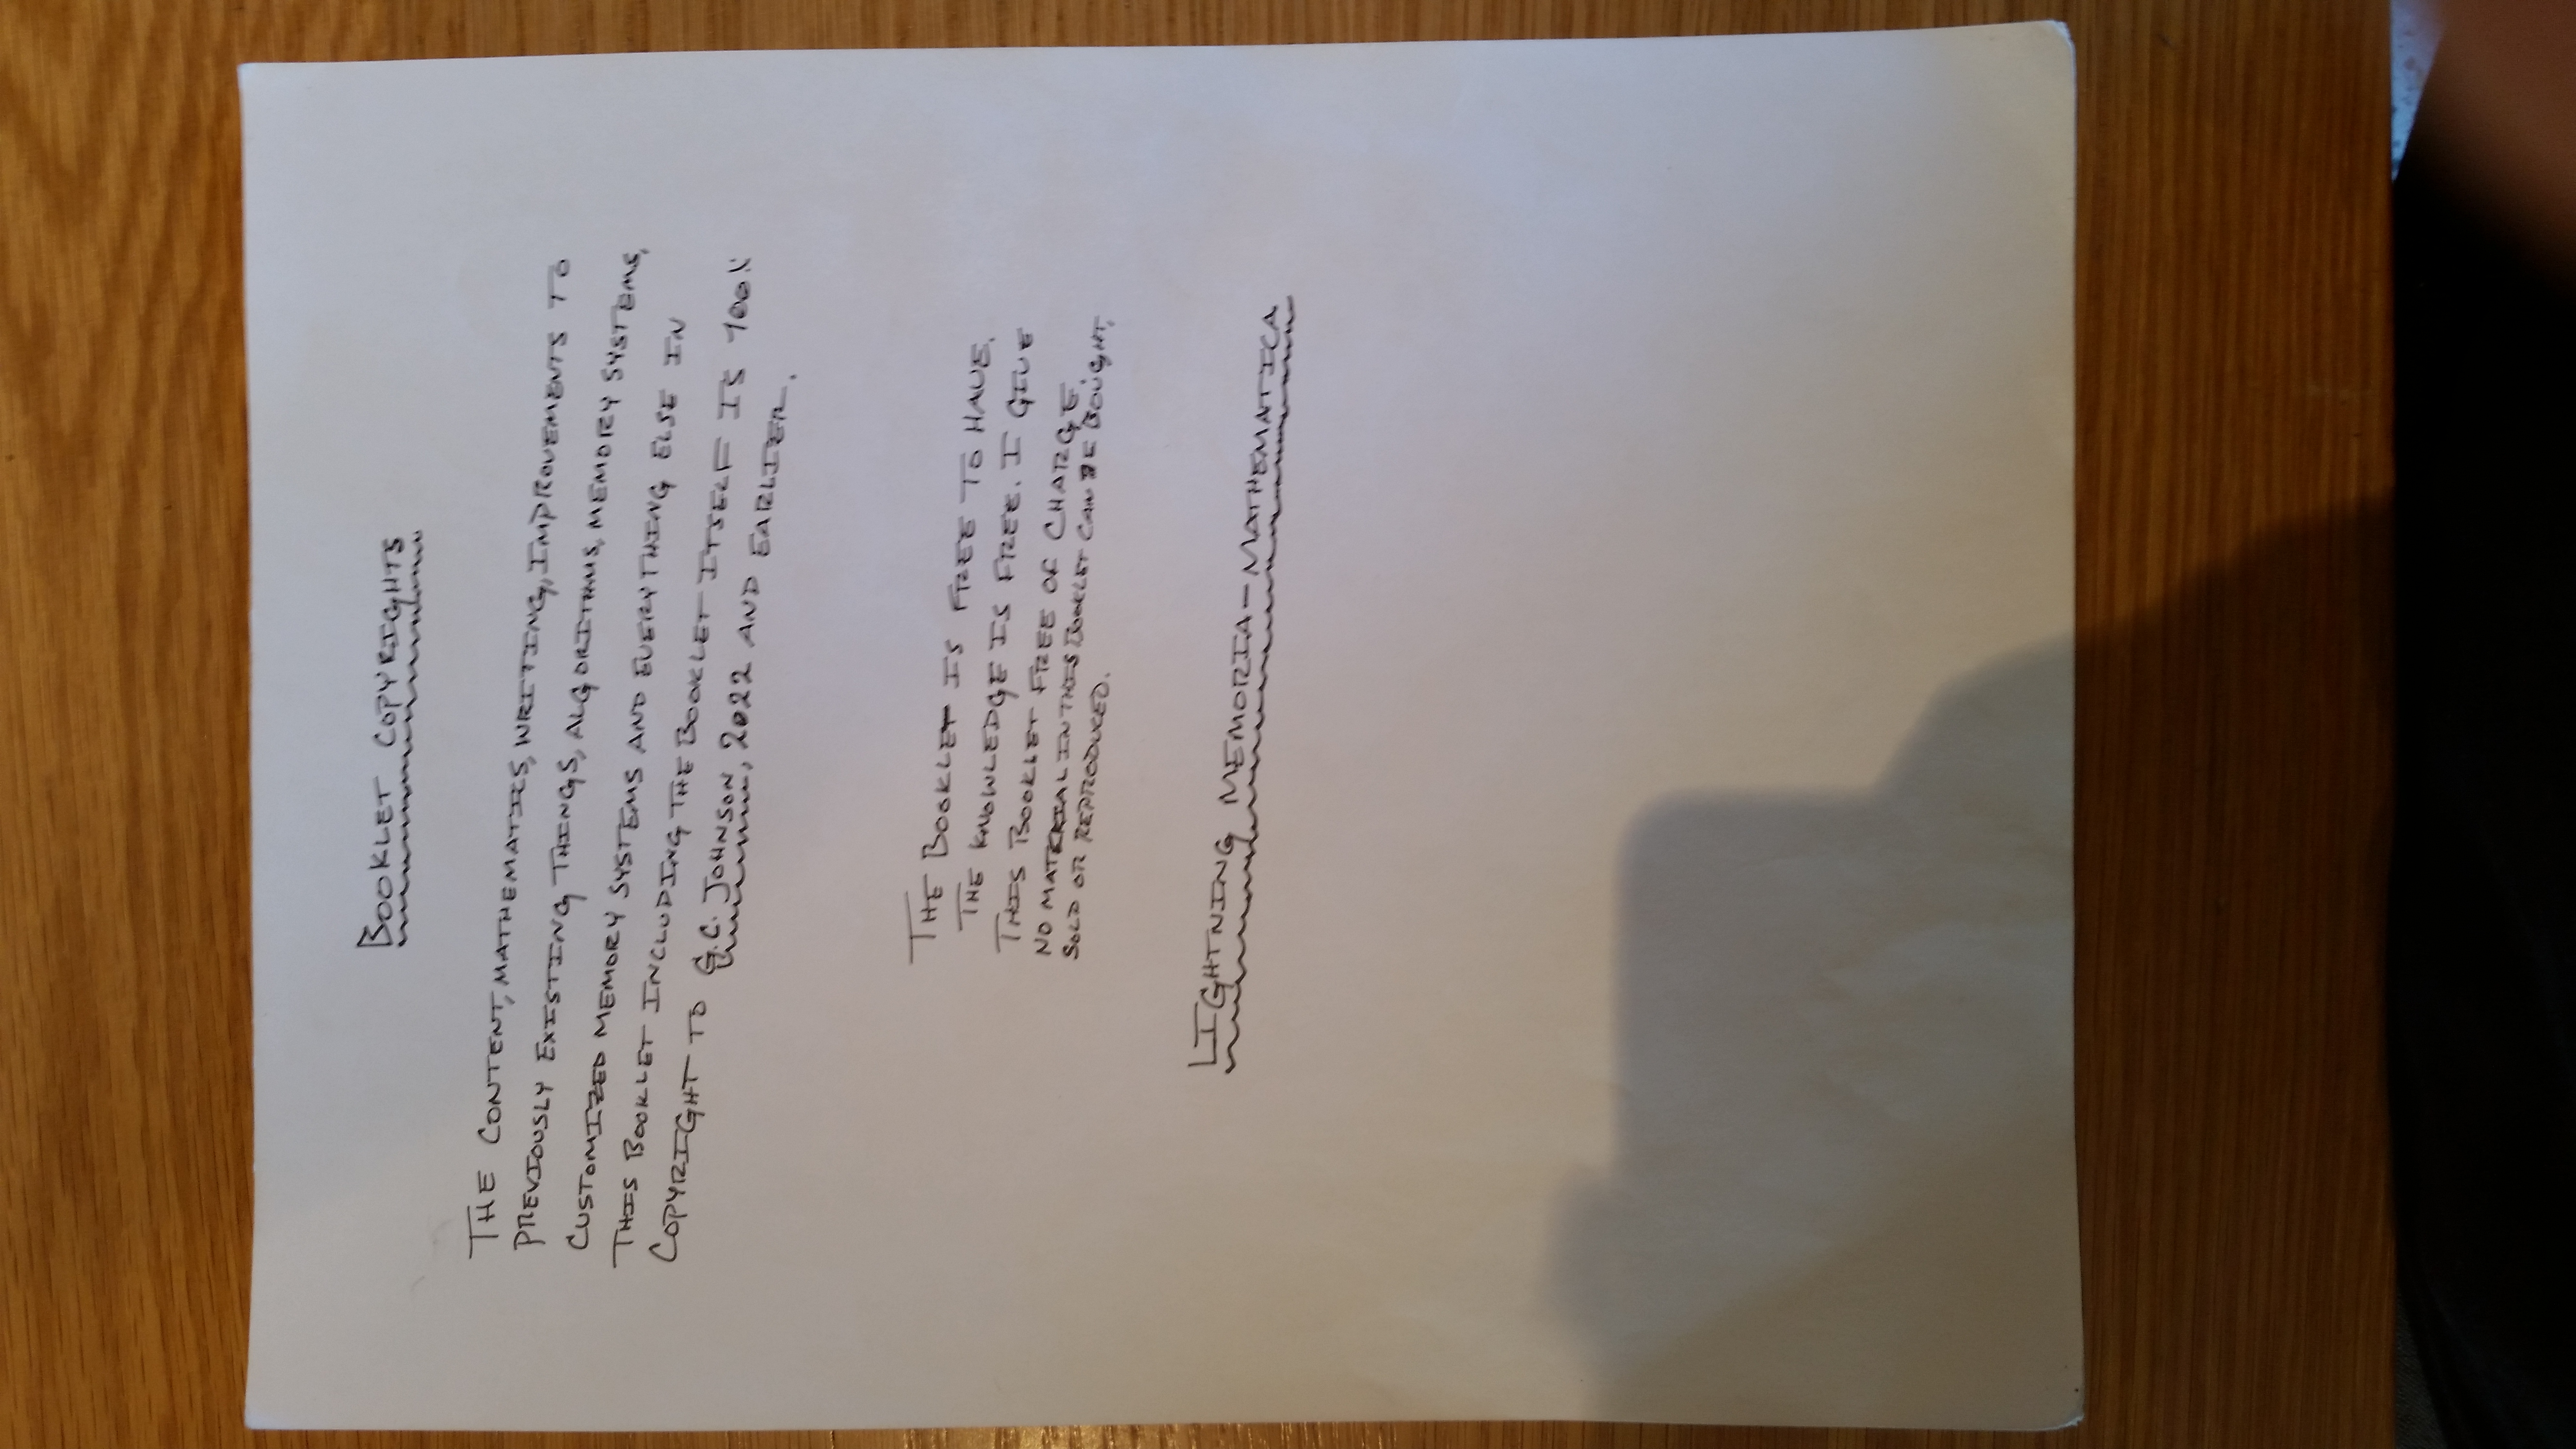 BOOKLET COPYRIGHTS
THE CONTENT, MATHEMATICS, WRITING, IMPROVEMENTS TO
PREVIOUSLY EXISTING THINGS, ALGORITHMS, MEMORY SYSTEMS,
CUSTOMIZED MEMORY SYSTEMS AND EVERYTHING ELSE IN
THIS BOOKLET INCLUDING THE BOOKLET ITSELF IS 100%
COPYRIGHT TO G.C. JOHNSON, 2022 AND EARLIER.
THE BOOKLET IS FREE TO HAVE.
THE KNOWLEDGE IS FREE. I GIVE
THIS BOOKLET FREE OF CHARGE.
NO MATERIAL IN THIS BOOKLET CAN BE BOUGHT,
SOLD OR REPRODUCED.
LIGHTNING MEMORIA-MATHEMATICA